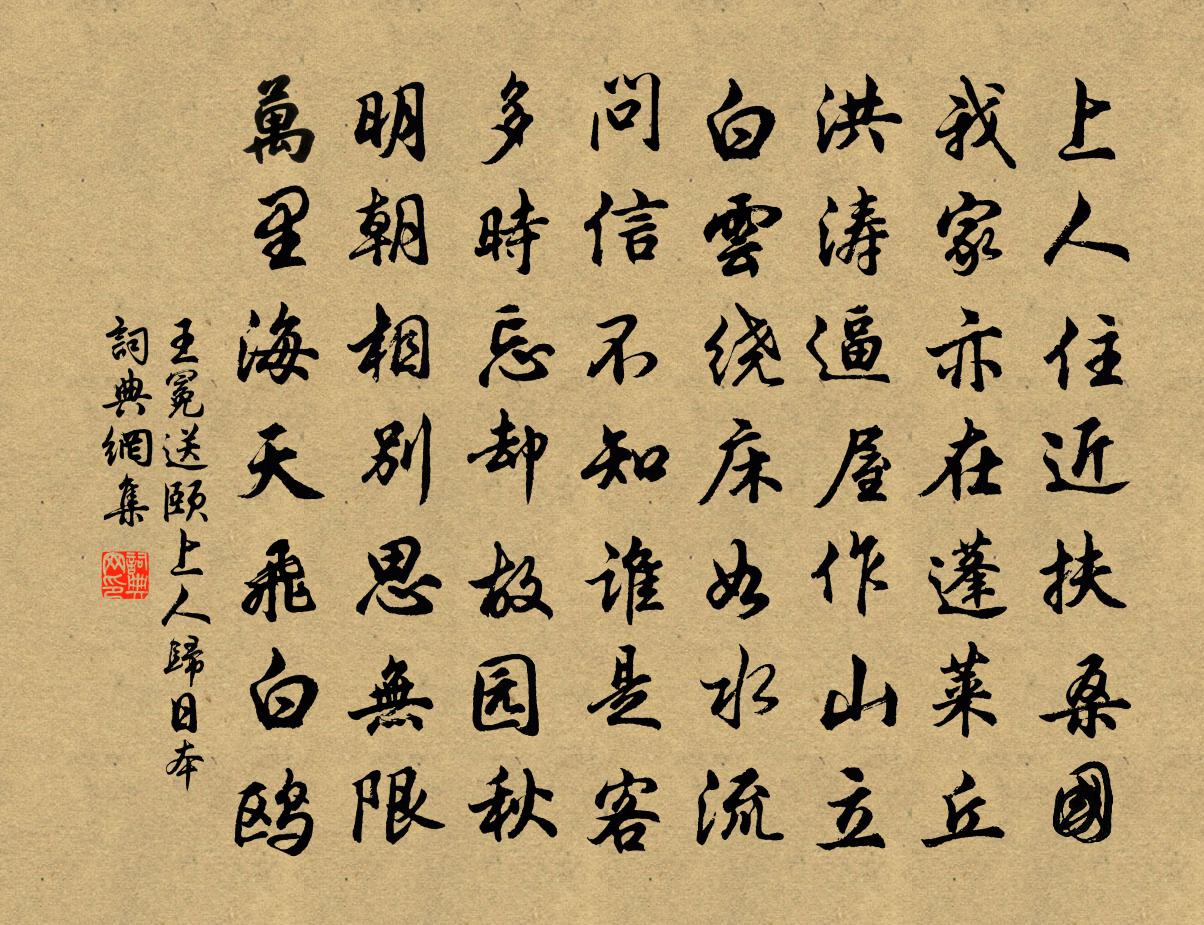 上人住近扶桑國
我家亦在蓬萊丘
洪涛逼屋作山立
白雲绕床如水流
問信不知谁是客
多時忘却故园秋
明朝相別思無限
萬里海天飛白鸥
王冕送頤上人歸日本
詞典網集
詞典网印